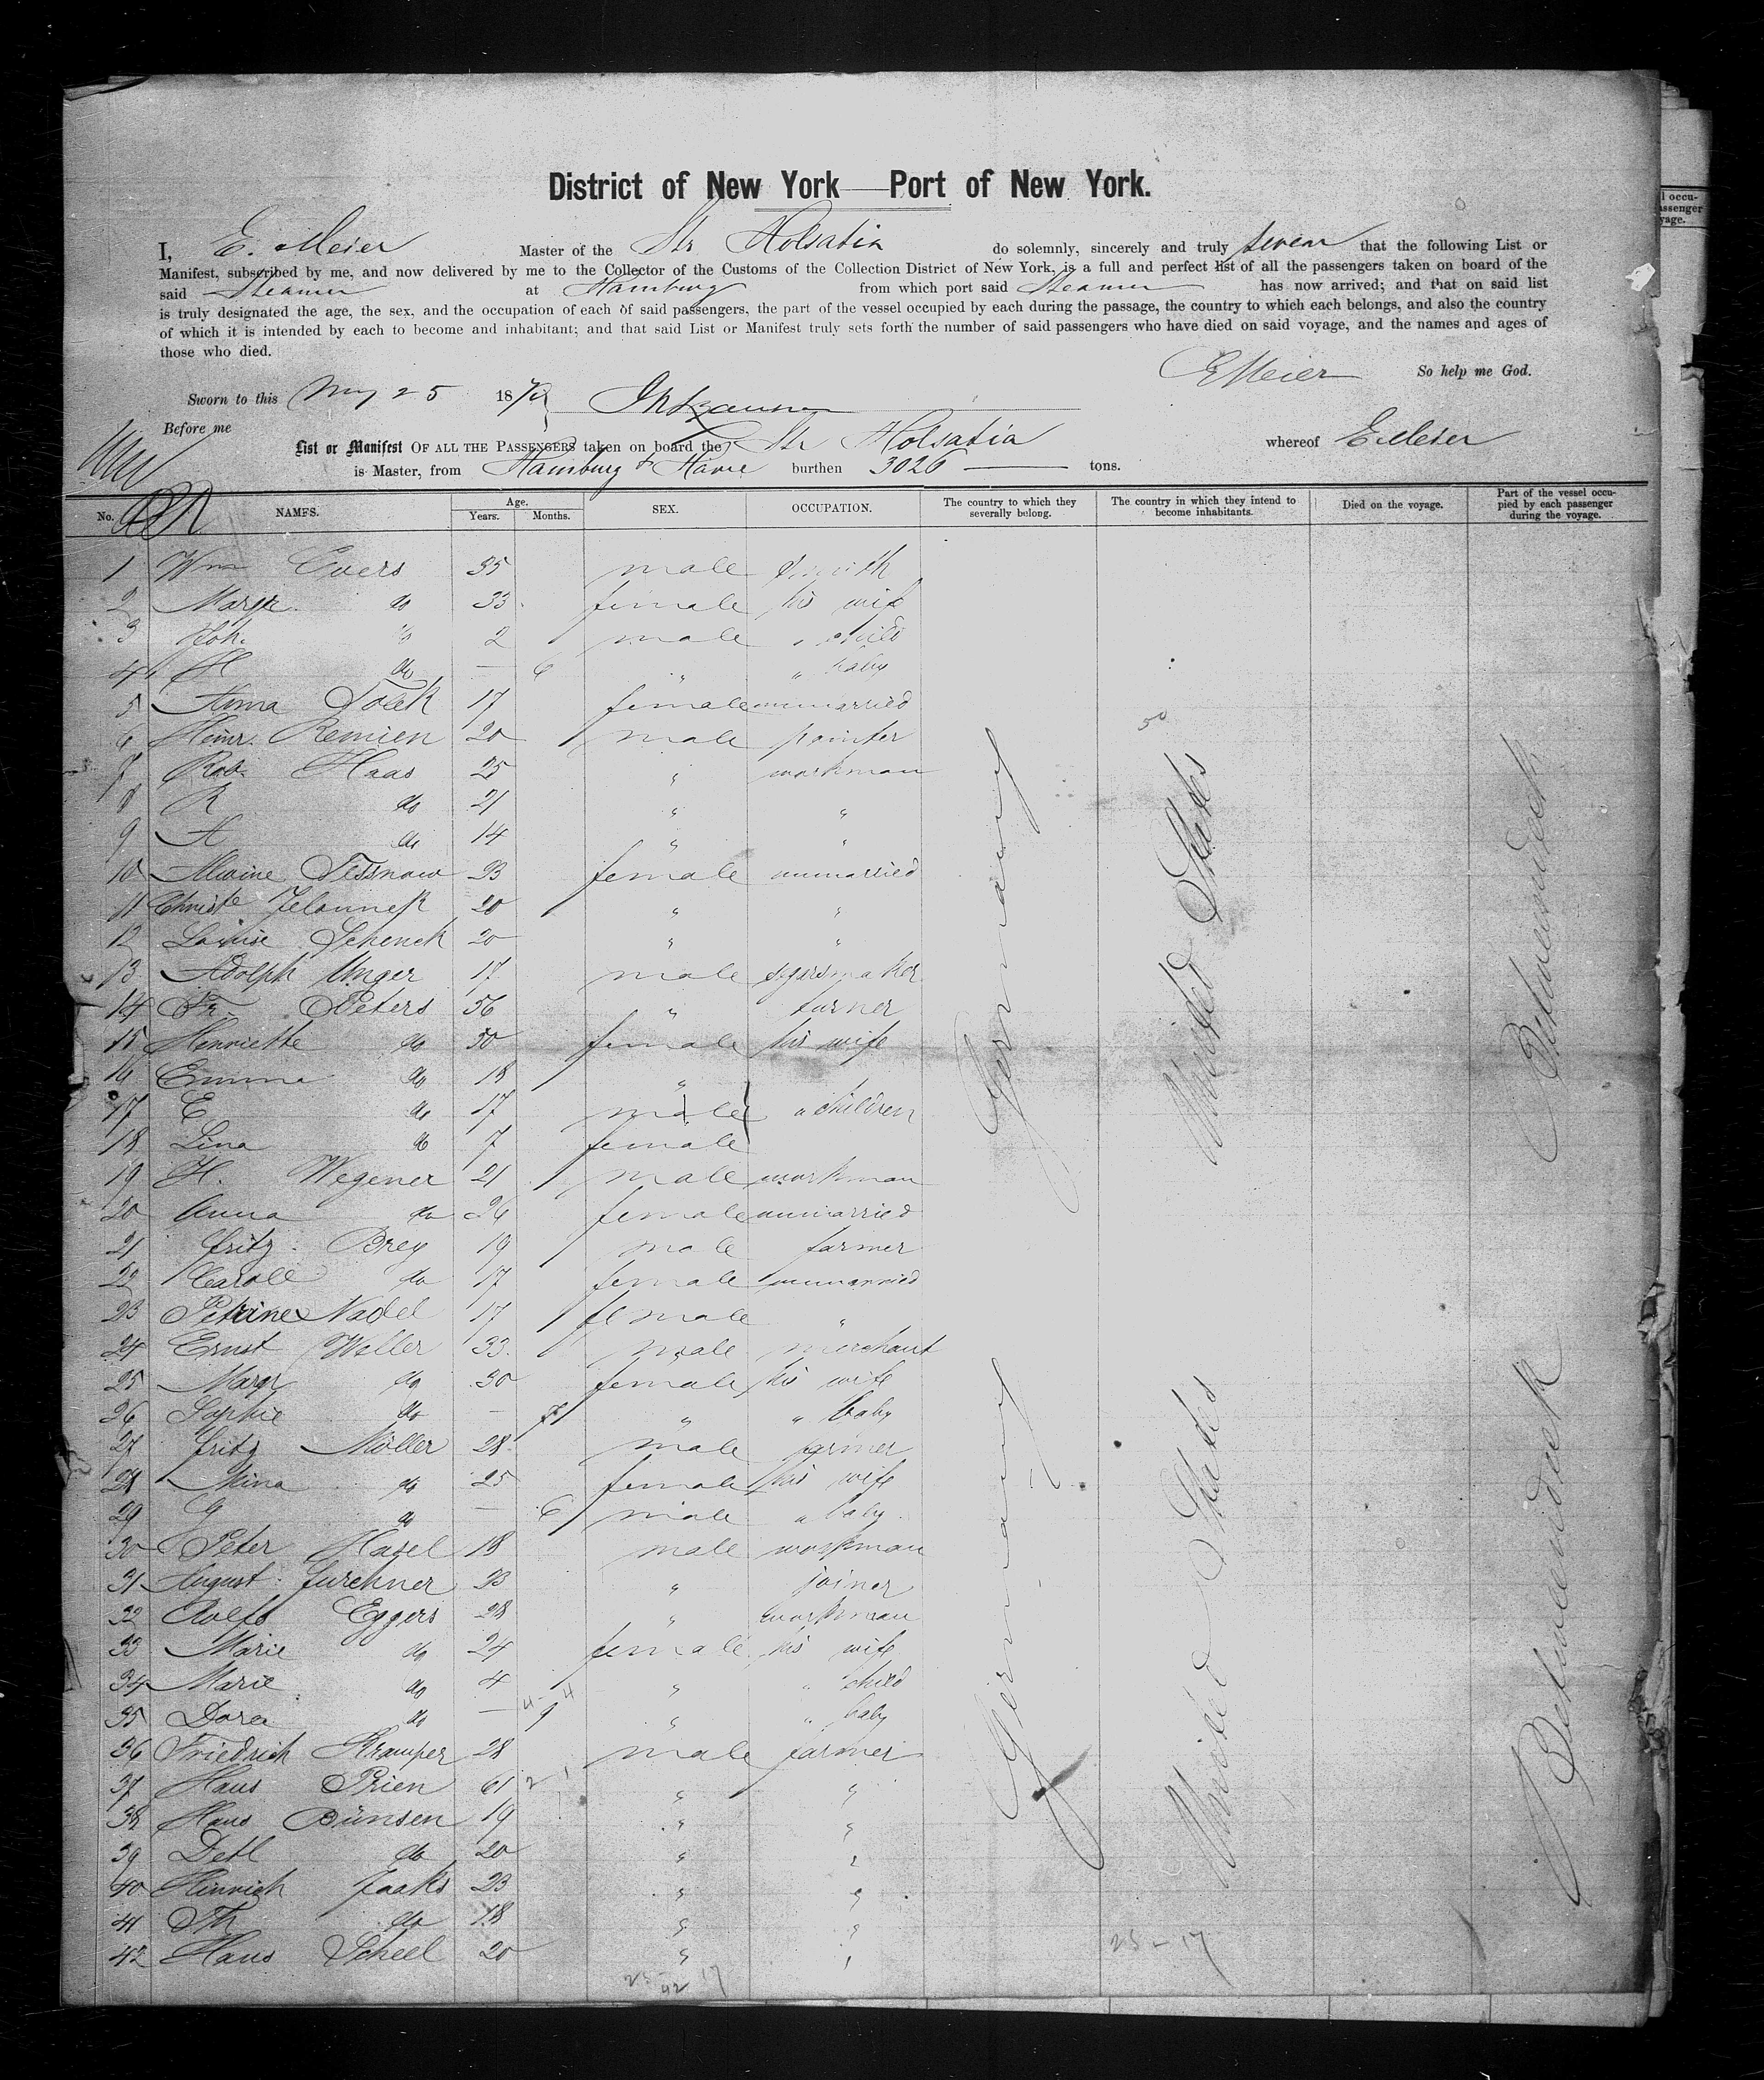 District of New York — Port of New York.
I, E. Meier Master of the Str Holsatia do solemnly, sincerely and truly swear that the following List or
Manifest, subscribed by me, and now delivered by me to the Collector of the Customs of the Collection District of New York, is a full and perfect list of all the passengers taken on board of the
said Steamer at Hamburg from which port said Steamer has now arrived; and that on said list
is truly designated the age, the sex, and the occupation of each of said passengers, the part of the vessel occupied by each during the passage, the country to which each belongs, and also the country
of which it is intended by each to become and inhabitant; and that said List or Manifest truly sets forth the number of said passengers who have died on said voyage, and the names and ages of
those who died.
EMeier So help me God.
Sworn to this May 25 18
Before me
List or Manifest OF ALL THE PASSENGERS taken on board the Str Holsatia whereof E Meier
is Master, from Hamburg & Havre burthen 3026 — tons.
No. NAMES. Age. Years. Months. SEX. OCCUPATION. The country to which they severally belong. The country in which they intend to become inhabitants. Died on the voyage. Part of the vessel occupied by each passenger during the voyage.
1 Wm Evers 35 male smith
2 Margr. do 33 female his wife
3 Joh. do 2 male " child
4 H do — 6 " " baby
5 Anna Tolck 17 female unmarried
6 Heinr. Remien 20 male painter
7 Rob. Haas 25 " workman
8 R do 21 " "
9 A do 14 " "
10 Alwine Tessnow 23 female unmarried
11 Christe Jelonnek 20 " "
12 Louise Schenck 20 " "
13 Adolph Unger 17 male segarsmaker
14 Fr. Peters 56 " turner
15 Henriette do 50 female his wife
16 Emma do 18 "
17 E do 17 male " children
18 Lina do 7 female
19 H. Wegener 21 male workman
20 Anna do 26 female unmarried
21 Fritz Brey 19 male farmer
22 Caroll do 17 female unmarried
23 Petrine Nadel 17 female "
24 Ernst Weller 33 male merchant
25 Margr do 30 female his wife
26 Sophie do — " " baby
27 Fritz Möller 28 male farmer
28 Mina do 25 female his wife
29 G do — 6 male " baby
30 Peter Hasel 18 male workman
31 August Furchner 23 " joiner
32 Eggers 28 " workman
33 Marie do 24 female his wife
34 Marie do 4 " " child
35 Dora do — 9 " " baby
36 Friedrich Kramper 28 male farmer
37 Hans Prien 61 " "
38 Hans Bünsen 19 " "
39 Detl do 20 " "
40 Hinrich Jaaks 23 " "
41 Th do 18 " "
42 Hans Scheel 20 " "
Germany United States Betweendeck
Germany United States Betweendeck
50
4 - 4
2 1
25 - 17
25 17
42